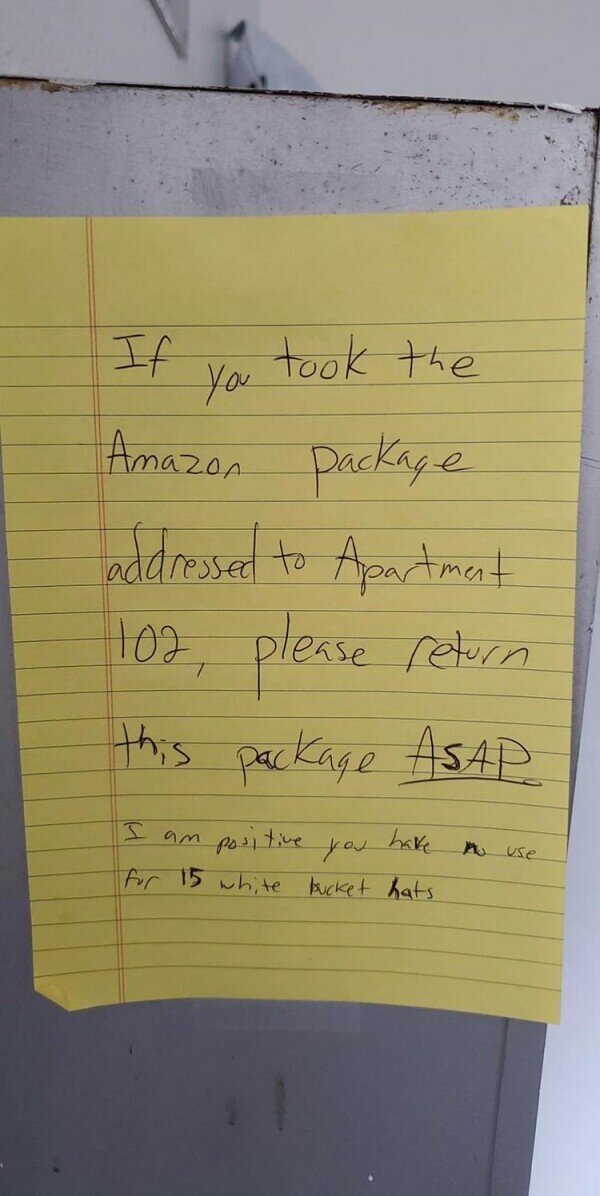 If you took the
Amazon package
addressed to Apartment
102, please return
this package ASAP.
I am positive you have no use
for 15 white bucket hats